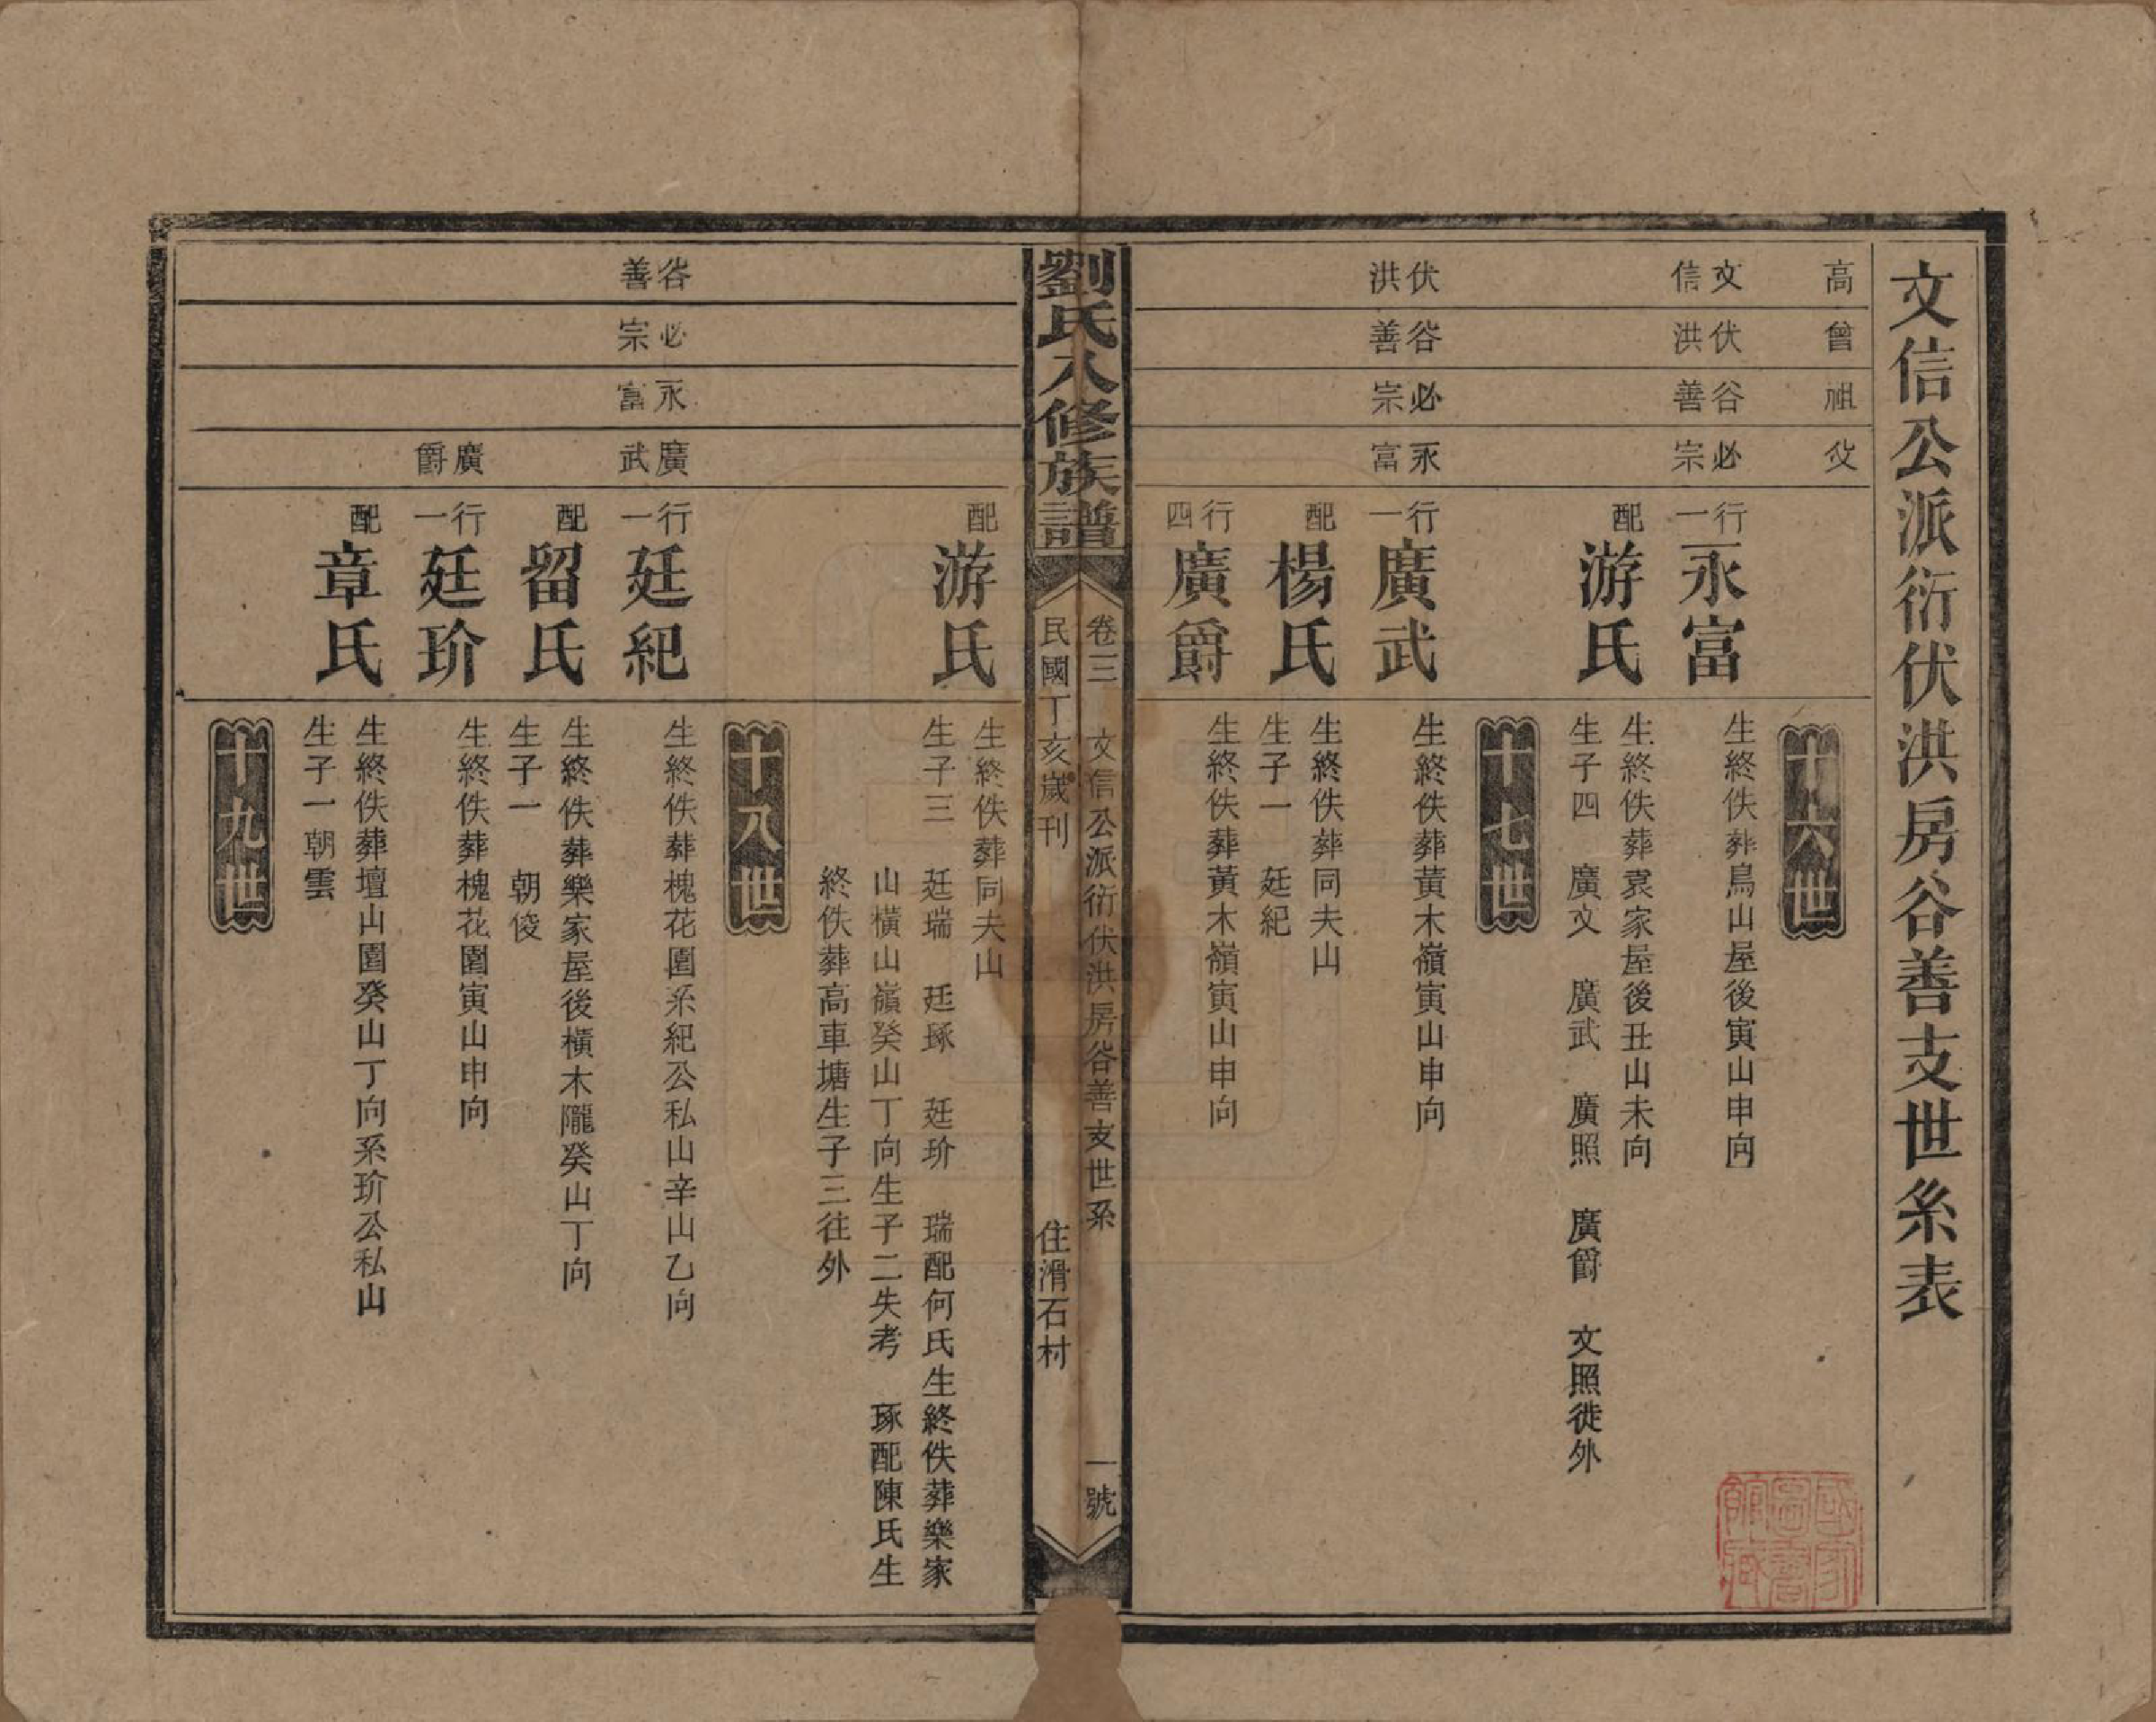 文信公派衍伏洪房谷善支世系表
高
曾
祖
父
十六世
文信
伏洪
谷善
必宗
行一
永富
生終佚葬鳥山屋後寅山申向
配
游氏
生終佚葬袁家屋後丑山未向
生子四 廣文 廣武 廣照 廣爵 文照徙外
十七世
伏洪
谷善
必宗
永富
行一
廣武
生終佚葬黃木嶺寅山申向
配
楊氏
生終佚葬同夫山
生子一 廷紀
行四
廣爵
生終佚葬黃木嶺寅山申向
劉氏八修族譜
卷三 文信公派衍伏洪房谷善支世系 一號
民國丁亥歲刊 住滑石村
配
游氏
生終佚葬同夫山
生子三 廷瑞 廷琢 廷玠 瑞配何氏生終佚葬樂家
山橫山嶺癸山丁向生子二失考 琢配陳氏生
終佚葬高車塘生子三往外
十八世
谷善
必宗
永富
廣武
行一
廷紀
生終佚葬槐花園系紀公私山辛山乙向
配
留氏
生終佚葬樂家屋後橫木隴癸山丁向
生子一 朝俊
廣爵
行一
廷玠
生終佚葬槐花園寅山申向
配
章氏
生終佚葬壇山園癸山丁向系玠公私山
生子一朝雲
十九世
國家
圖書
館藏